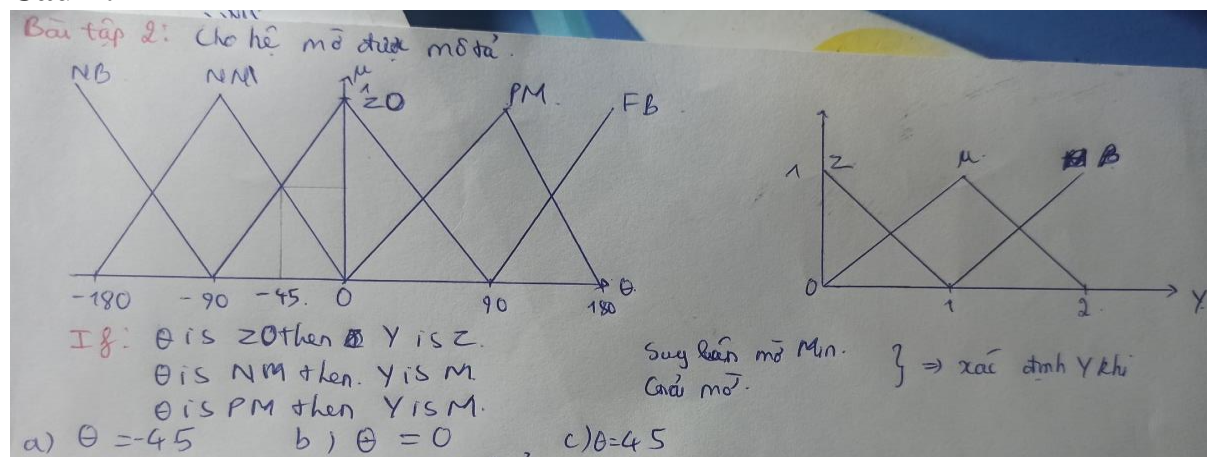 Bài tập 2: Cho hệ mờ được mô tả.
NB NM μ 1 ZO PM. FB
1 Z M. B
-180 -90 -45. 0 90 180 θ
0 1 2 Y
If: θ is ZO then Y is Z.
θ is NM then. Y is M
θ is PM then Y is M.
Suy luận mờ Min.
Giải mờ.
} ⇒ xác định Y khi
a) θ = -45 b) θ = 0 , c) θ = 45